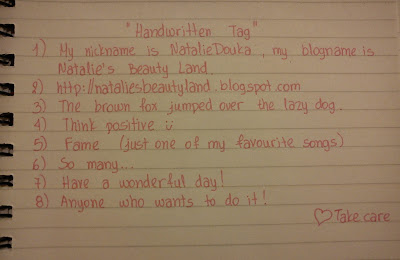 "Handwritten Tag"
1) My nickname is NatalieDouka, my blogname is
Natalie's Beauty Land.
2) http://nataliesbeautyland.blogspot.com
3) The brown fox jumped over the lazy dog.
4) Think positive ت
5) Fame (just one of my favourite songs)
6) So many...
7) Have a wonderful day!
8) Anyone who wants to do it!
♡Take care